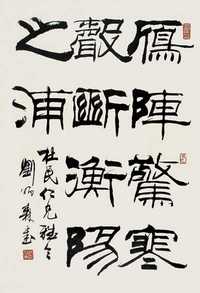 鴈陣驚寒
聲斷衡陽
之浦
杜民仁兄
劉炳森書